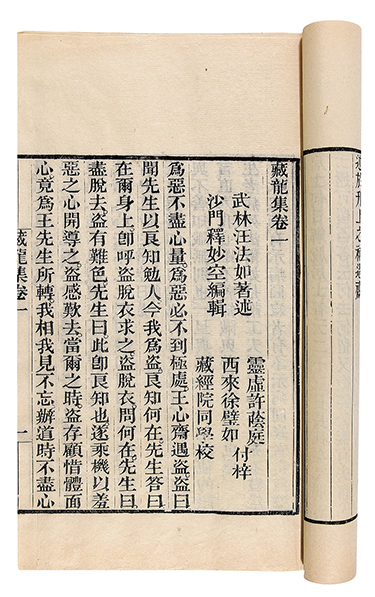 藏龍集卷一
武林汪法如著述
沙門釋妙空編輯
靈虛許蔭庭
西來徐璧如
付梓
藏經院同學校
為惡不盡心量為惡必不到極處王心齋遇盜盜曰
聞先生以良知勉人今我為盜良知何在先生答曰
在爾身上即呼盜脫衣求之盜脫衣問何在先生曰
盡脫去盜有難色先生曰此即良知也遂乘機以羞
惡之心開導之盜感歎去當爾之時盜存顧惜體面
心竟為王先生所轉我相我見不忘辦道時不盡心
藏龍集卷一
一